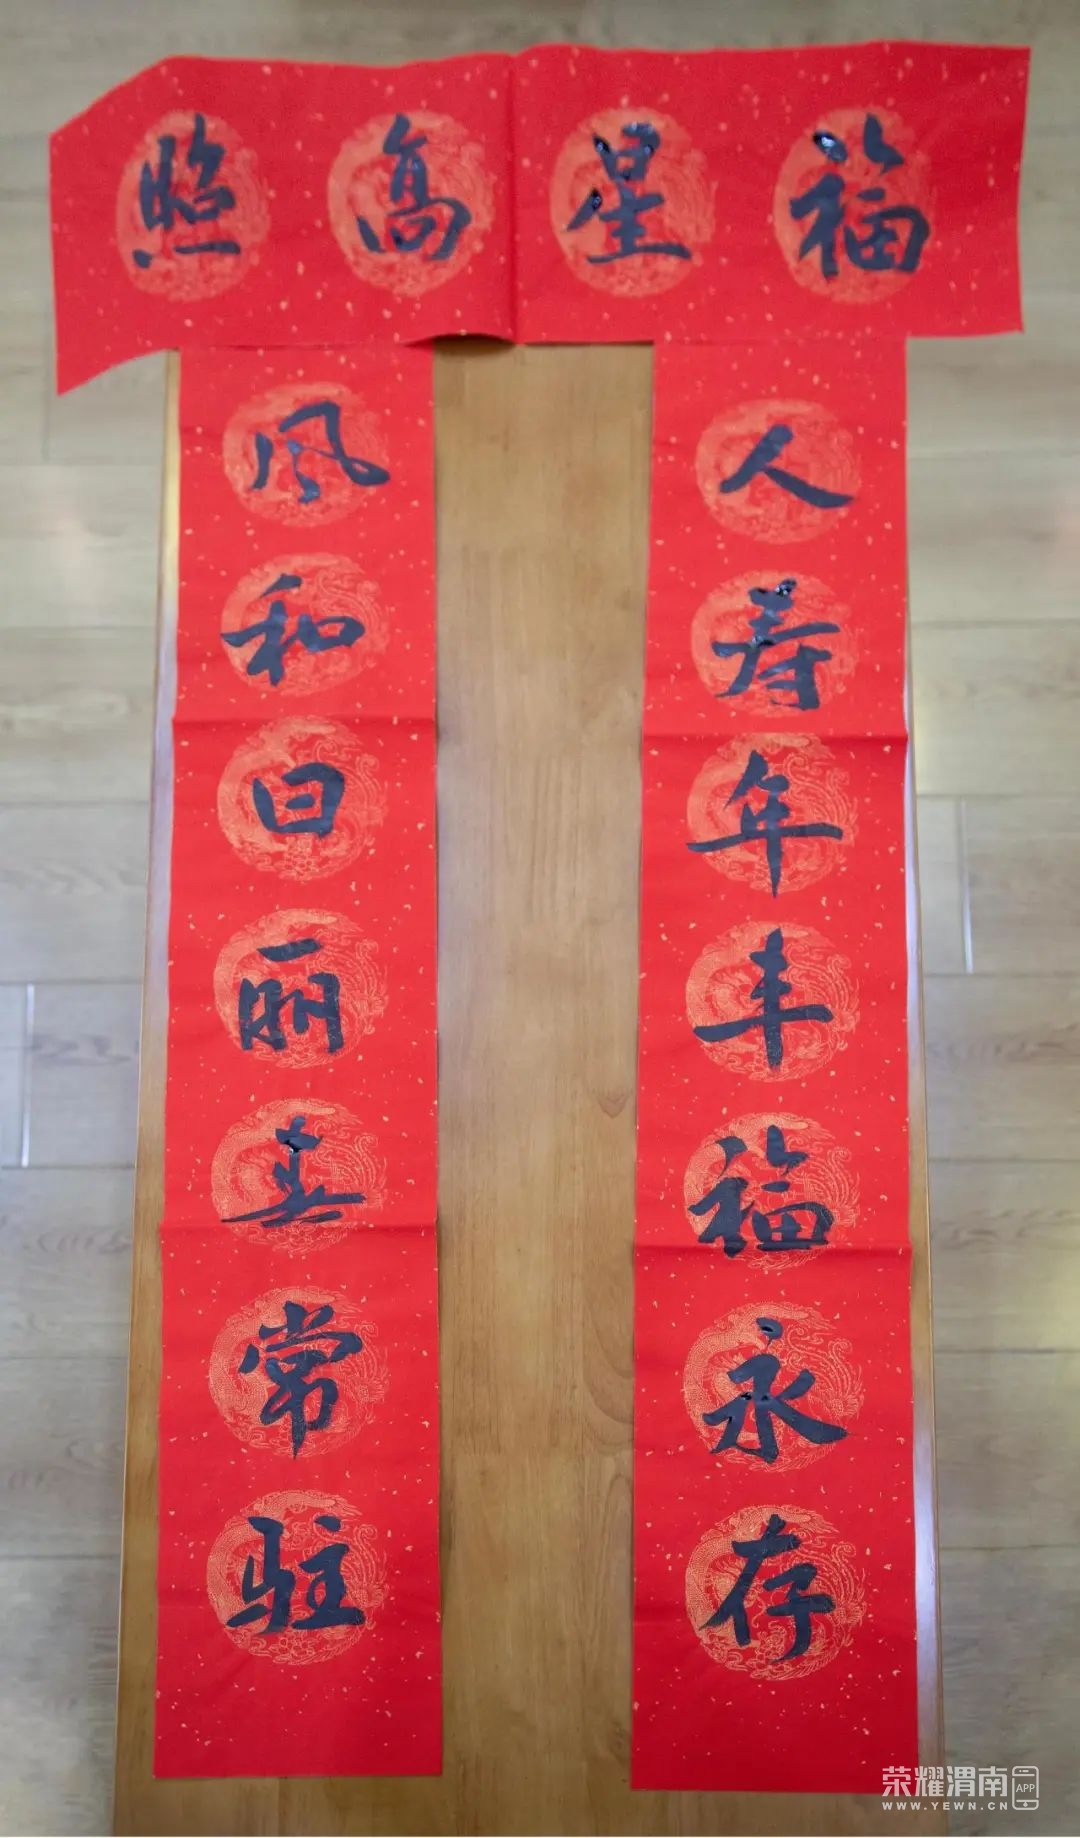 福星高照
人寿年丰福永存
风和日丽春常驻
荣耀渭南
APP
WWW.YEWN.CN